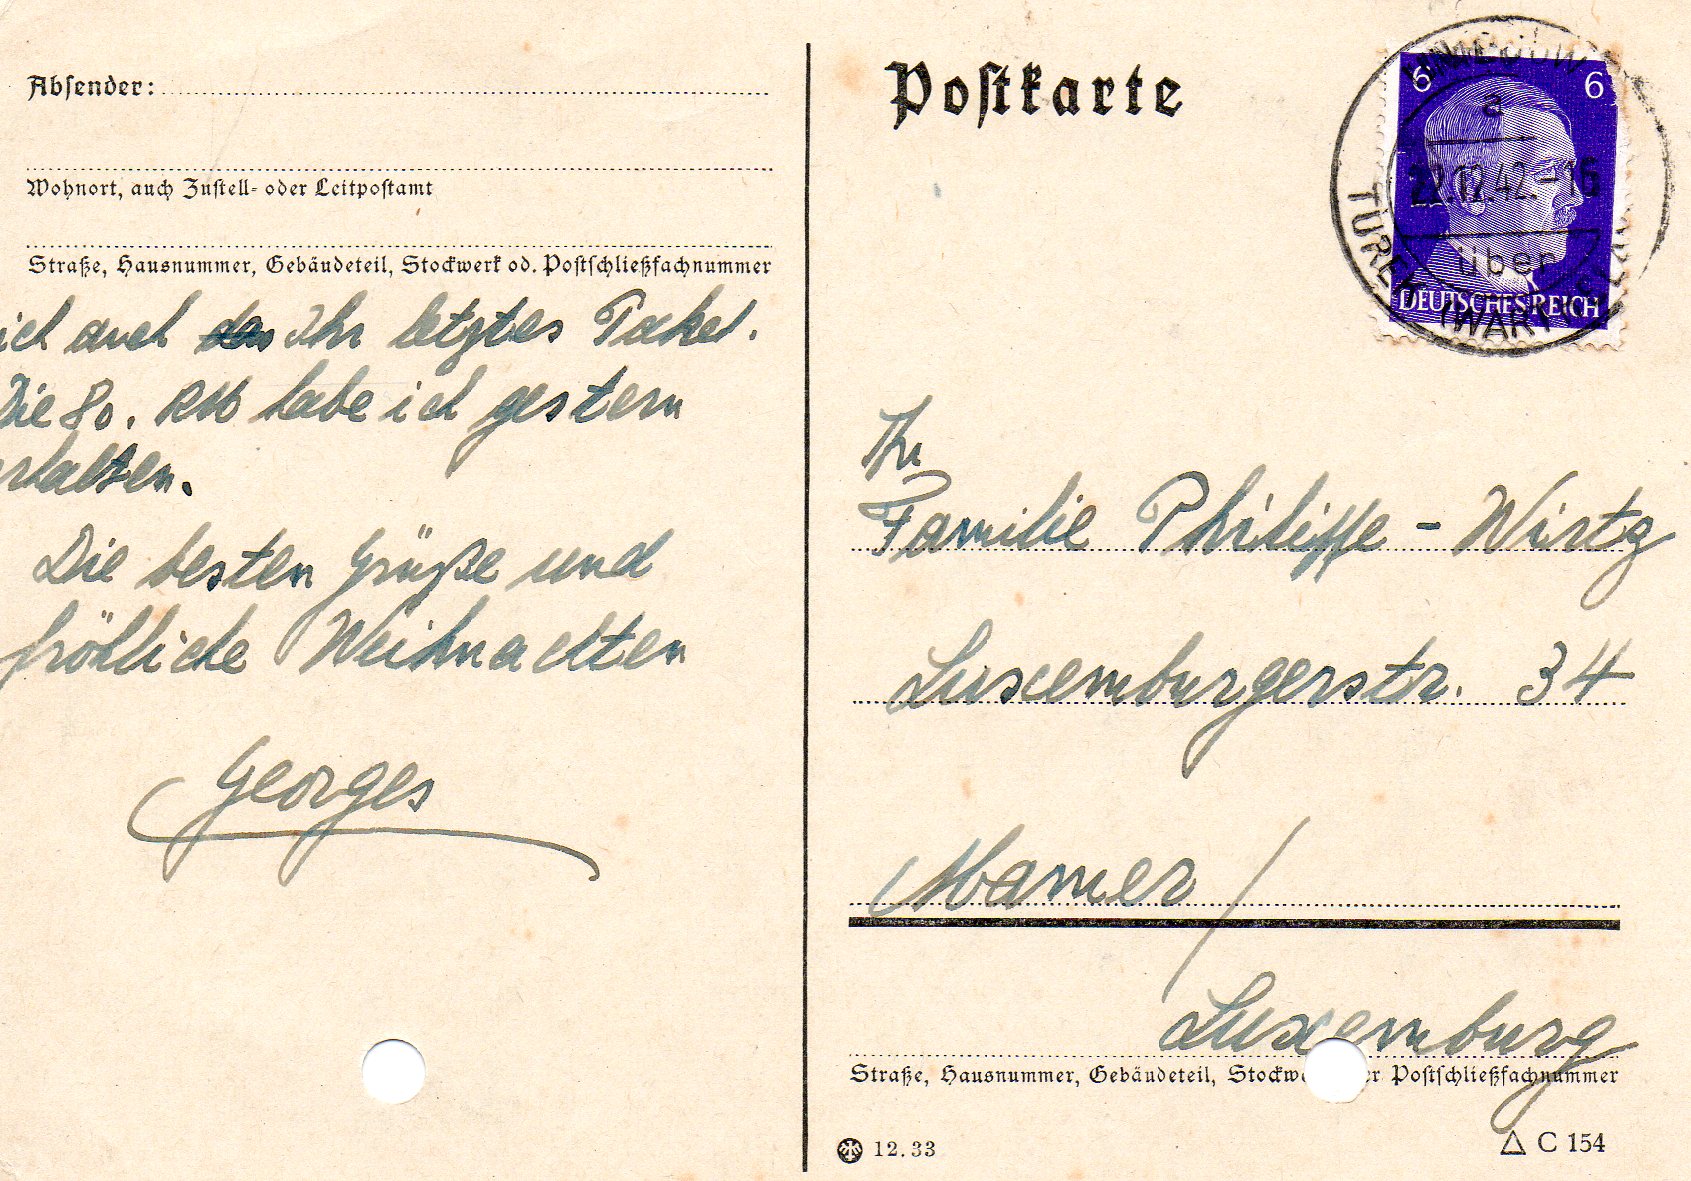 Absender:
Wohnort, auch Zustell- oder Leitpostamt
Straße, Hausnummer, Gebäudeteil, Stockwerk od. Postschließfachnummer
ich auch Ihr letztes Paket.
Die 80. RM habe ich gestern
erhalten.
Die besten Grüße und
fröhliche Weihnachten
Georges
Postkarte
6 6
a
22.12.42.-16
über
TUREK (WARTHELAND)
DEUTSCHES REICH
Familie Philippe - Wirtz
Luxemburgerstr. 34
Mamer /
Luxemburg
Straße, Hausnummer, Gebäudeteil, Stockwerk oder Postschließfachnummer
12.33
C 154